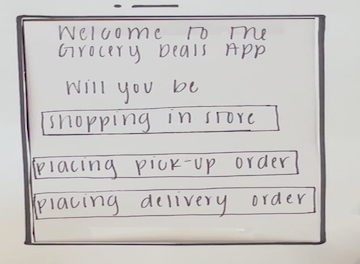 Welcome To The
Grocery Deals App
Will you be
shopping in store
placing pick-up order
placing delivery order